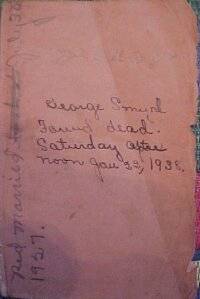 George Smyrl
Found dead.
Saturday after
noon Jan 22, 1938.
Red married
1927.